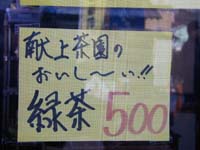 献上茶園の
おいし〜い!!
緑茶 500